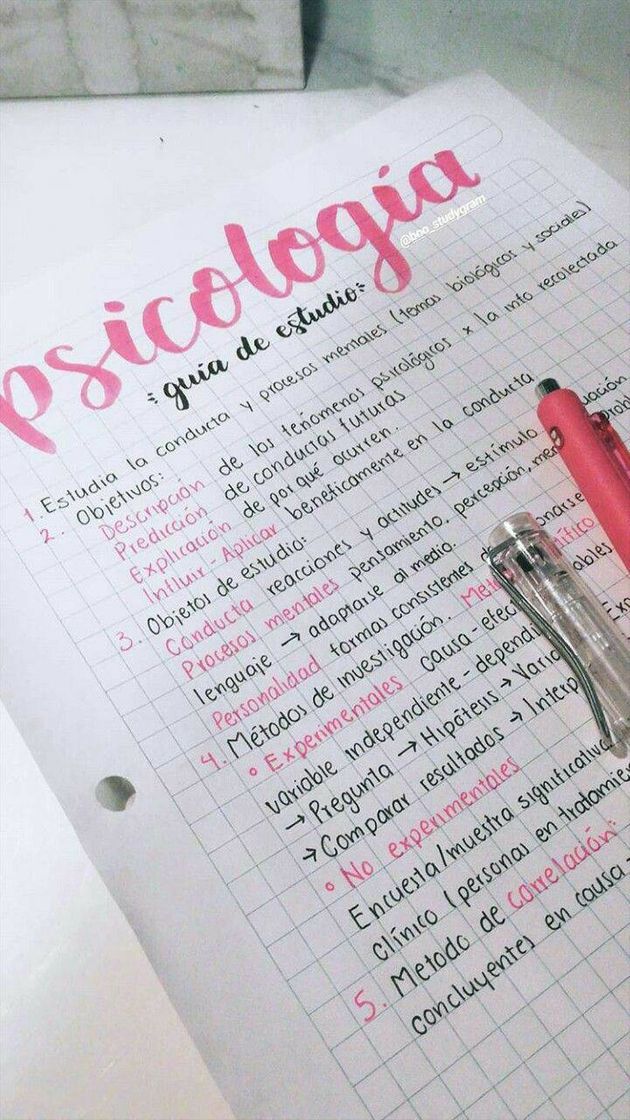 psicología
@boo_studygram
guía de estudio
1 Estudia la conducta y procesos mentales (temas biológicos y sociales)
2. Objetivos:
Descripción de los fenómenos psicológicos x la info recolectada
Predicción de conductas futuras
Explicación de por qué ocurren.
Influir-Aplicar beneficamente en la conducta
3. Objetos de estudio:
Conducta reacciones y actitudes → estímulo
Procesos mentales pensamiento, percepción,
lenguaje → adaptarse al medio.
Personalidad formas consistentes
4. Métodos de investigación.
° Experimentales causa-efec
variable independiente-dependi
→ Pregunta → Hipótesis → Varia
→ Comparar resultados → Interp
° No experimentales
Encuesta/muestra significativa
clínico (personas en tratamie
5. Metodo de correlación:
concluyentes en causa-